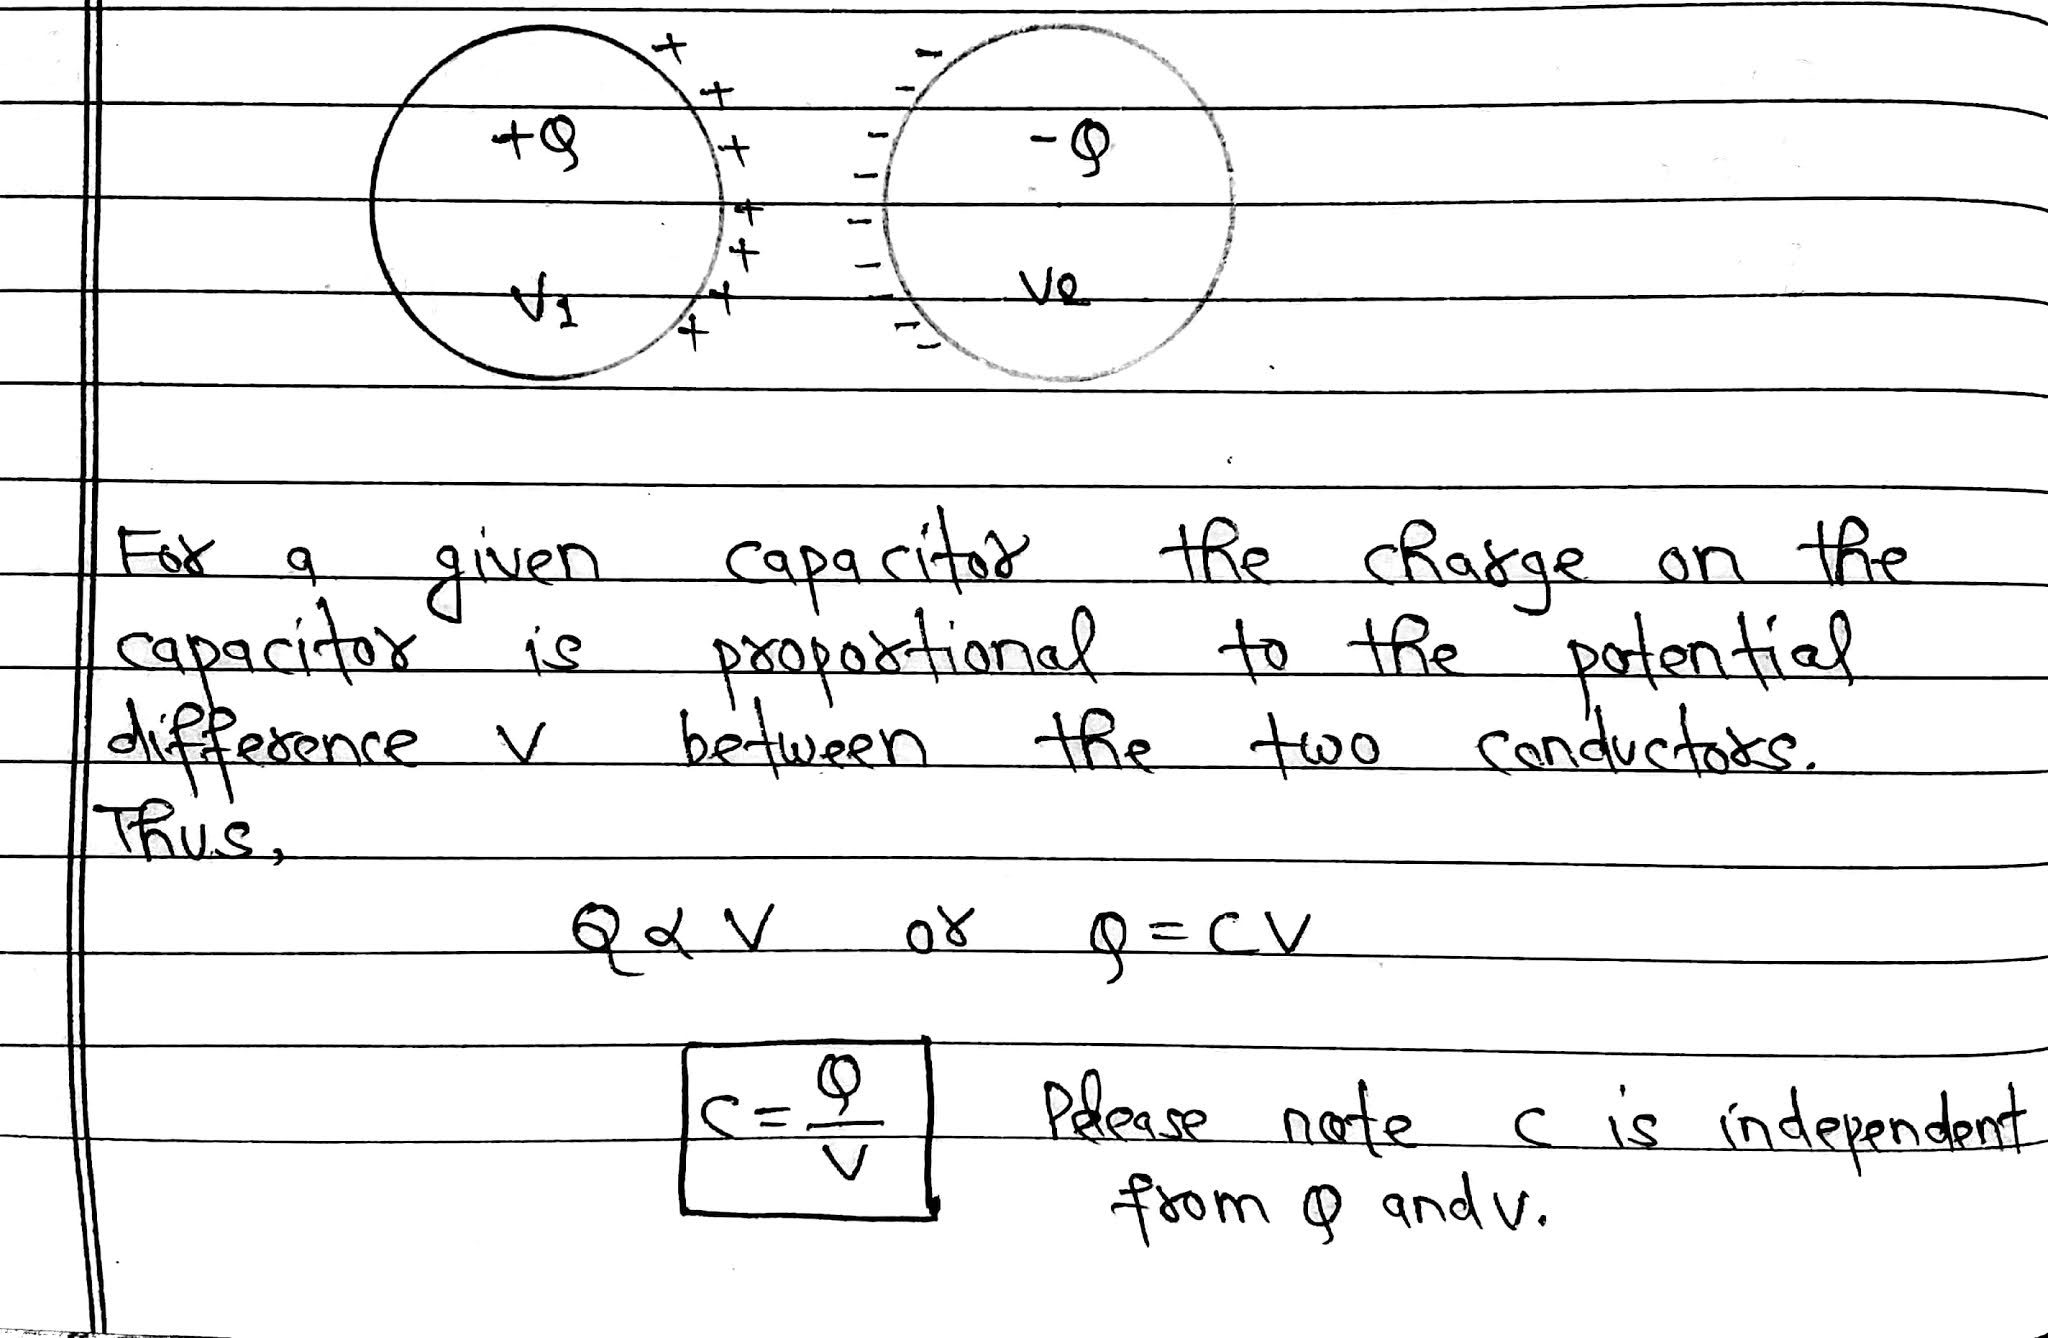 +Q -Q
V1 V2
For a given capacitor the charge on the
capacitor is proportional to the potential
difference V between the two conductors.
Thus,
Q ∝ V or Q = CV
C = Q/V Please note C is independent
from Q and V.